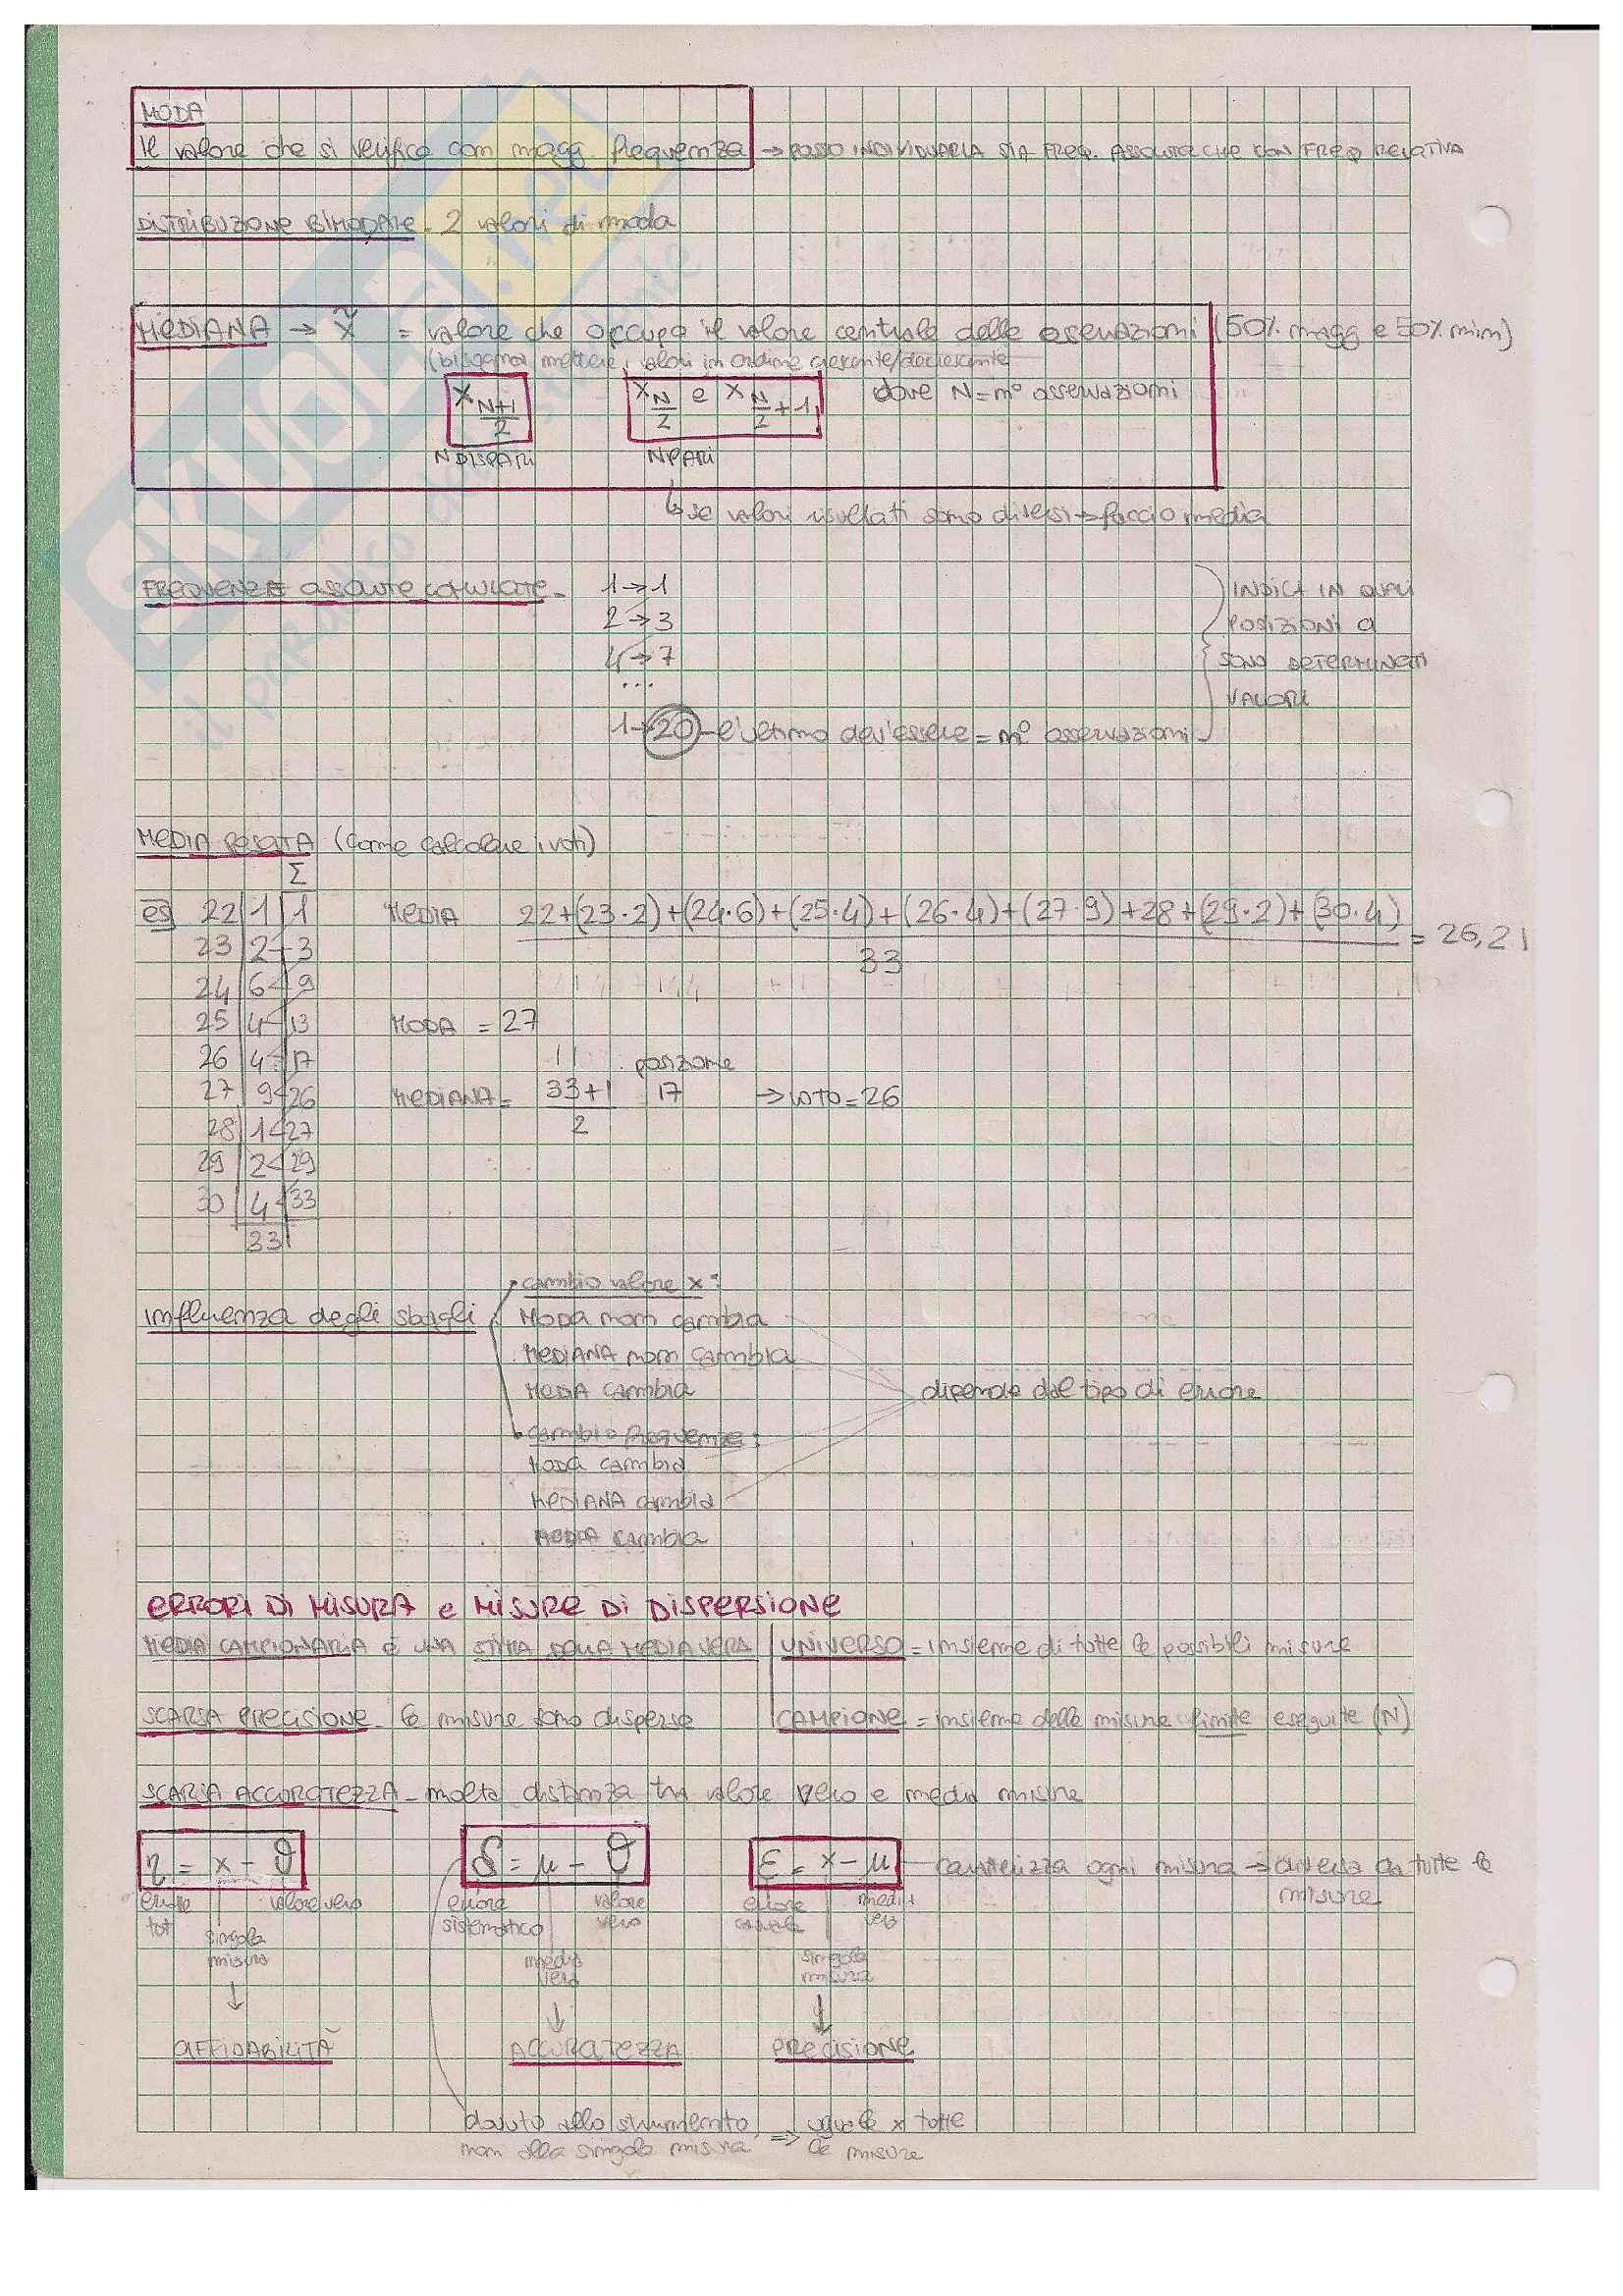 MODA
Il valore che si verifica con magg. frequenza → POSSO INDIVIDUARLA SIA FREQ. ASSOLUTA CHE CON FREQ RELATIVA
DISTRIBUZIONE BIMODALE - 2 valori di moda
MEDIANA → x̃ = valore che occupa il valore centrale delle osservazioni (50% magg e 50% min)
(bisogna mettere i valori in ordine crescente/decrescente
x N+1/2 x N/2 e x N/2 +1 dove N = n° osservazioni
N DISPARI N PARI
↳ se valori risultati sono diversi → faccio media
FREQUENZE assolute cumulate - 1→1
2→3
4→7
...
1→20 - l'ultimo dev'essere = n° osservazioni
INDICA IN QUALI
POSIZIONI
SONO DETERMINATI
VALORI
MEDIA PESATA (come calcolare i voti)
Σ
es 22 | 1 | 1 MEDIA 22+(23·2)+(24·6)+(25·4)+(26·4)+(27·9)+28+(29·2)+(30·4) / 33 = 26,21
23 | 2 | 3
24 | 6 | 9
25 | 4 | 13 MODA = 27
26 | 4 | 17
27 | 9 | 26 MEDIANA = 33+1 / 2 posizione 17 → VOTO = 26
28 | 1 | 27
29 | 2 | 29
30 | 4 | 33
33
influenza degli sbagli
cambio valore x:
MODA non cambia
MEDIANA non cambia
MEDIA cambia
dipende dal tipo di errore
cambio frequenze:
MODA cambia
MEDIANA cambia
MEDIA cambia
ERRORI DI MISURA e MISURE DI DISPERSIONE
MEDIA CAMPIONARIA È UNA STIMA DELLA MEDIA VERA | UNIVERSO = insieme di tutte le possibili misure
SCARSA PRECISIONE - le misure sono disperse | CAMPIONE = insieme delle misure finite eseguite (N)
SCARSA ACCURATEZZA - molta distanza tra valore vero e media misure
η = x - ϑ δ = μ - ϑ ε = x - μ caratterizza ogni misura → diversa da tutte le misure
errore tot valore vero errore sistematico valore vero errore casuale media vera
singola misura media vera singola misura
↓ ↓ ↓
AFFIDABILITÀ ACCURATEZZA PRECISIONE
dovuto allo strumento, ⇒ uguale x tutte
non alla singola misura le misure